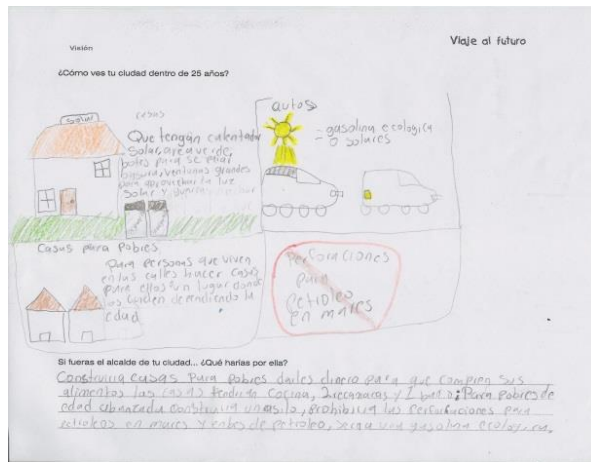 Viaje al futuro
Visión
¿Cómo ves tu ciudad dentro de 25 años?
Solar
casas
Que tengan calentador
Solar, area verde,
botes para separar
basura, ventanas grandes
para aprovechar la luz
Solar y
autos
- gasolina ecologica
- o solares
Casas para Pobres
Para personas que viven
en las calles hacer casas
para ellos un lugar donde
los cuiden dependiendo la
edad
Perforaciones
para
Petroleo
en mares
Si fueras el alcalde de tu ciudad... ¿Qué harías por ella?
Construiria casas Para pobres darles dinero para que compren sus
alimentos las casas tendrian cocina, 2 recamaras y 1 baño; Para pobres de
edad abanzada construiria un asilo, prohibiria las perforaciones para
petroleos en mares y de petroleo, una gasolina ecologica.